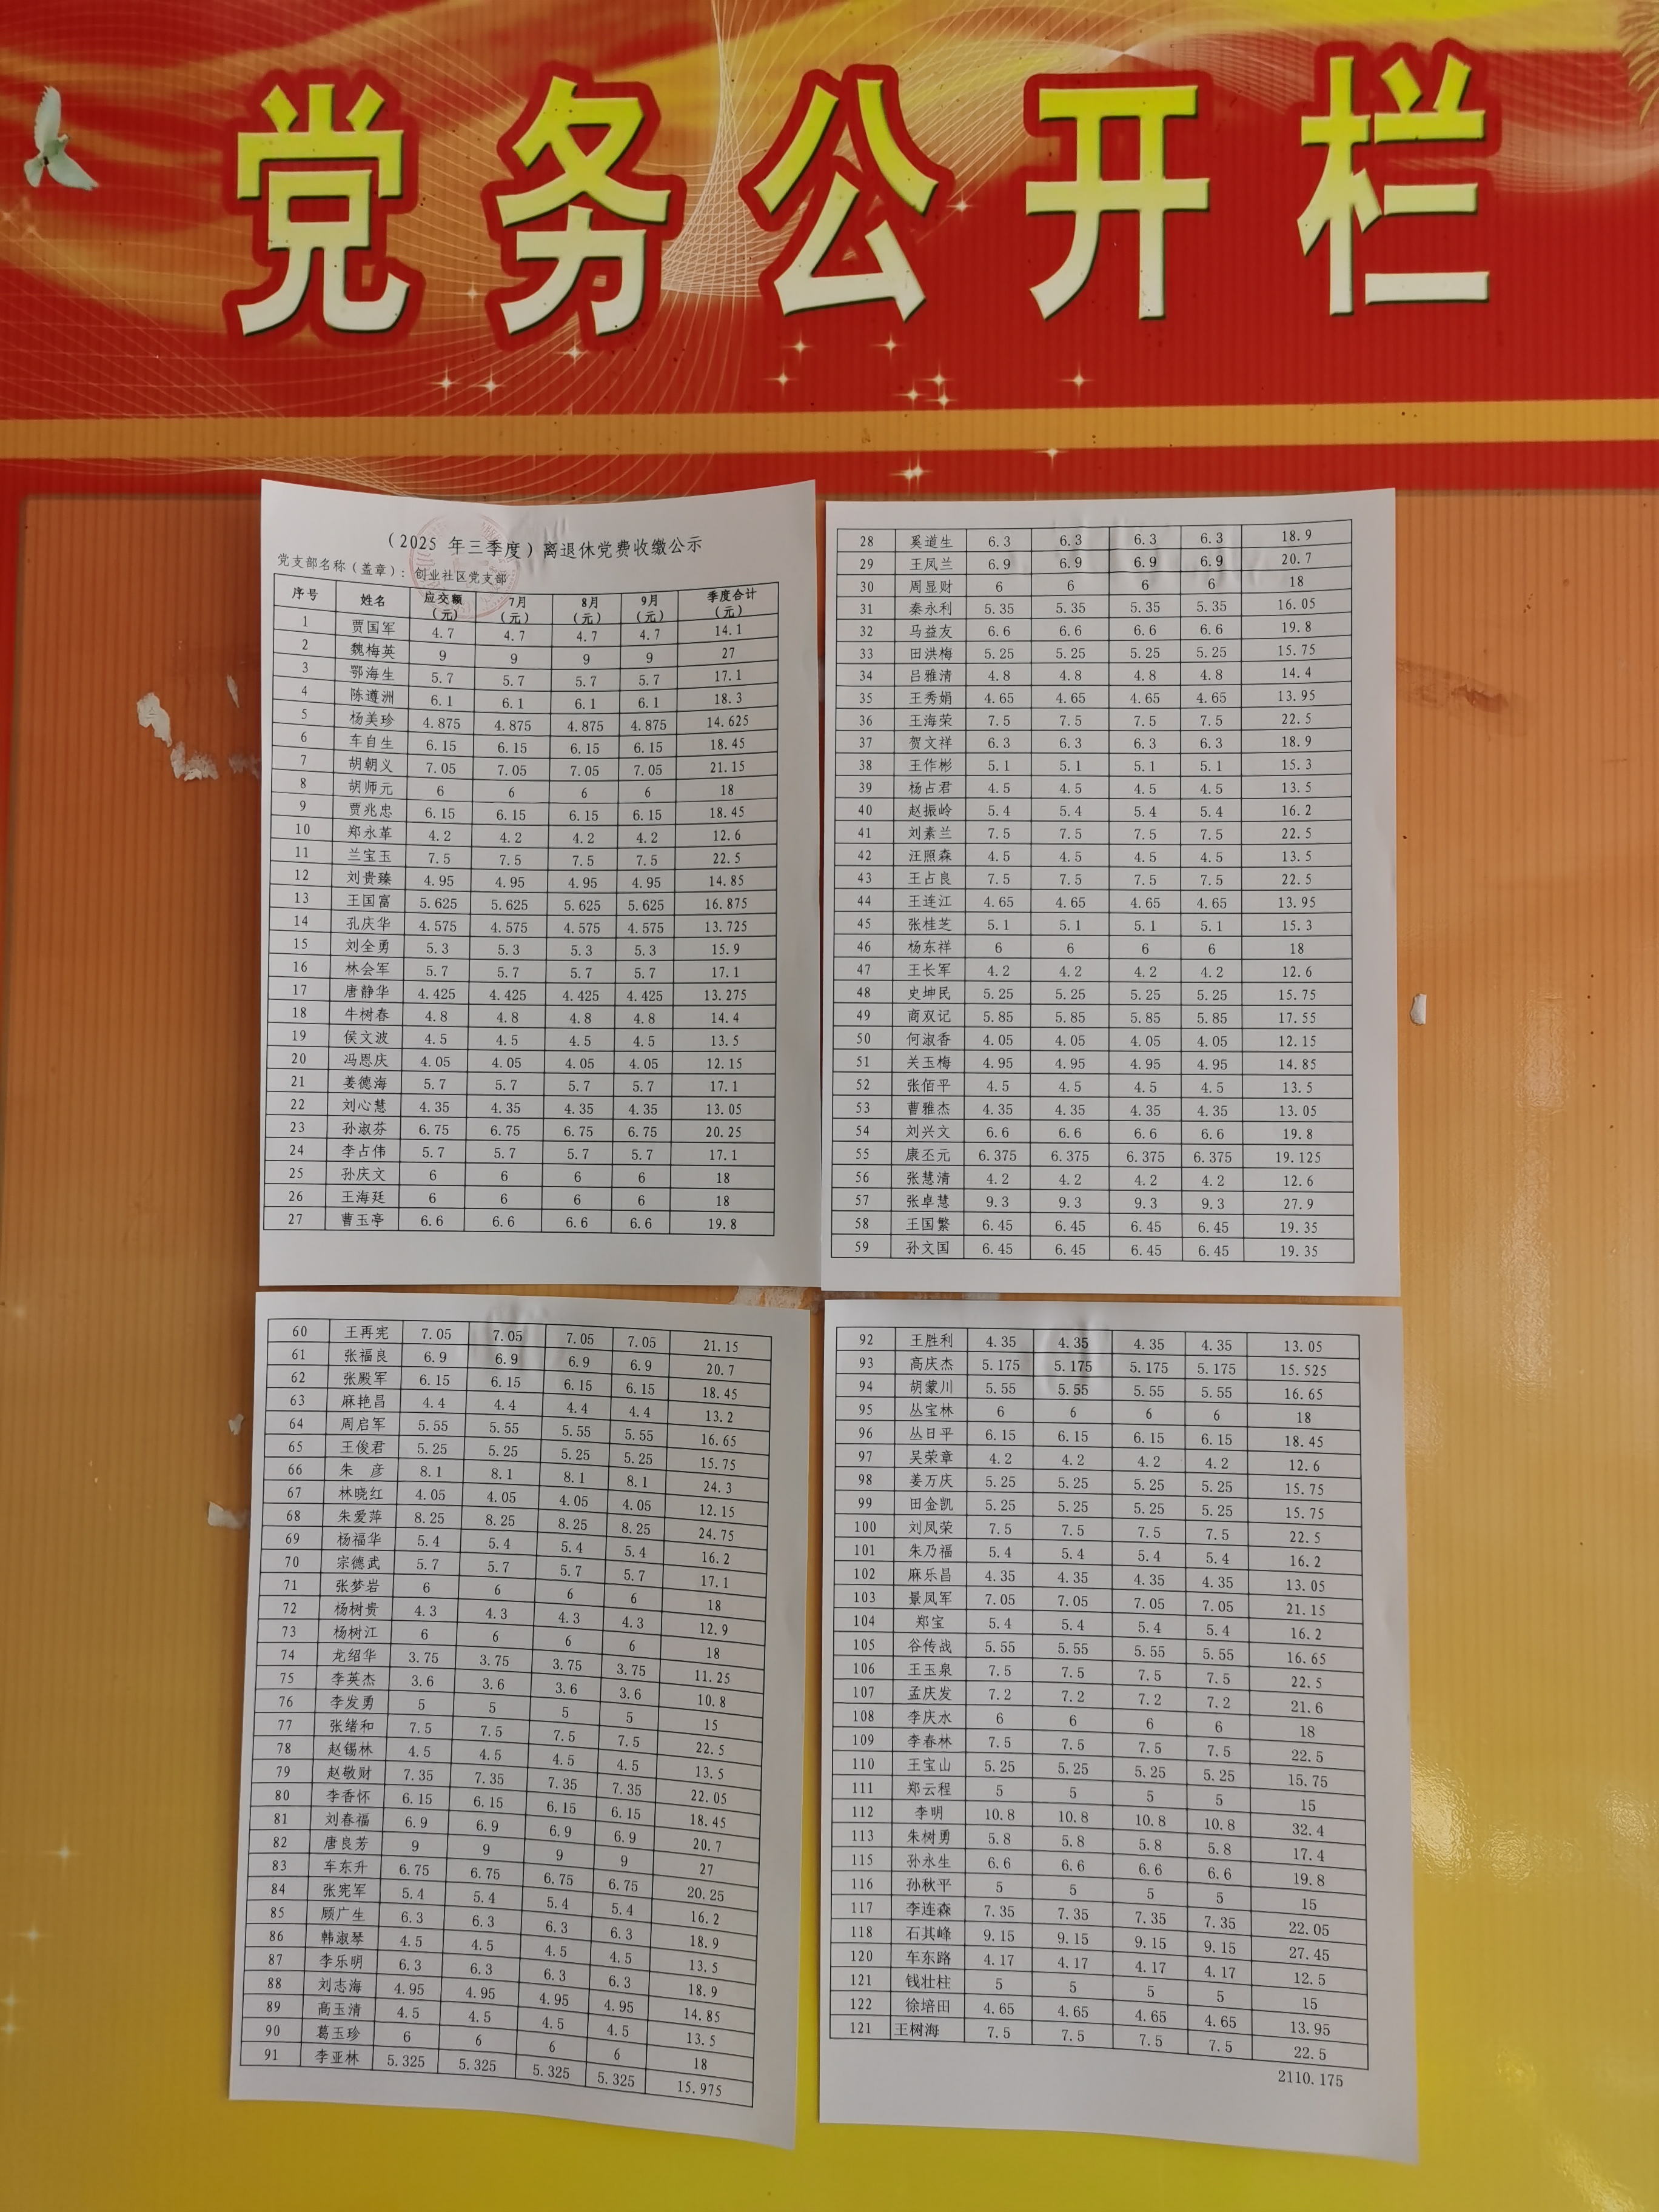 党务公开栏
（2025 年三季度）离退休党费收缴公示
党支部名称（盖章）：创业社区党支部
序号 姓名 应交额（元） 7月（元） 8月（元） 9月（元） 季度合计（元）
1 贾国军 4.7 4.7 4.7 4.7 14.1
2 魏梅英 9 9 9 9 27
3 鄂海生 5.7 5.7 5.7 5.7 17.1
4 陈遵洲 6.1 6.1 6.1 6.1 18.3
5 杨美珍 4.875 4.875 4.875 4.875 14.625
6 车自生 6.15 6.15 6.15 6.15 18.45
7 胡朝义 7.05 7.05 7.05 7.05 21.15
8 胡师元 6 6 6 6 18
9 贾兆忠 6.15 6.15 6.15 6.15 18.45
10 郑永革 4.2 4.2 4.2 4.2 12.6
11 兰宝玉 7.5 7.5 7.5 7.5 22.5
12 刘贵臻 4.95 4.95 4.95 4.95 14.85
13 王国富 5.625 5.625 5.625 5.625 16.875
14 孔庆华 4.575 4.575 4.575 4.575 13.725
15 刘全勇 5.3 5.3 5.3 5.3 15.9
16 林会军 5.7 5.7 5.7 5.7 17.1
17 唐静华 4.425 4.425 4.425 4.425 13.275
18 牛树春 4.8 4.8 4.8 4.8 14.4
19 侯文波 4.5 4.5 4.5 4.5 13.5
20 冯恩庆 4.05 4.05 4.05 4.05 12.15
21 姜德海 5.7 5.7 5.7 5.7 17.1
22 刘心慧 4.35 4.35 4.35 4.35 13.05
23 孙淑芬 6.75 6.75 6.75 6.75 20.25
24 李占伟 5.7 5.7 5.7 5.7 17.1
25 孙庆文 6 6 6 6 18
26 王海廷 6 6 6 6 18
27 曹玉亭 6.6 6.6 6.6 6.6 19.8
28 奚道生 6.3 6.3 6.3 6.3 18.9
29 王凤兰 6.9 6.9 6.9 6.9 20.7
30 周显财 6 6 6 6 18
31 秦永利 5.35 5.35 5.35 5.35 16.05
32 马益友 6.6 6.6 6.6 6.6 19.8
33 田洪梅 5.25 5.25 5.25 5.25 15.75
34 吕雅清 4.8 4.8 4.8 4.8 14.4
35 王秀娟 4.65 4.65 4.65 4.65 13.95
36 王海荣 7.5 7.5 7.5 7.5 22.5
37 贺文祥 6.3 6.3 6.3 6.3 18.9
38 王作彬 5.1 5.1 5.1 5.1 15.3
39 杨占君 4.5 4.5 4.5 4.5 13.5
40 赵振岭 5.4 5.4 5.4 5.4 16.2
41 刘素兰 7.5 7.5 7.5 7.5 22.5
42 汪照森 4.5 4.5 4.5 4.5 13.5
43 王占良 7.5 7.5 7.5 7.5 22.5
44 王连江 4.65 4.65 4.65 4.65 13.95
45 张桂芝 5.1 5.1 5.1 5.1 15.3
46 杨东祥 6 6 6 6 18
47 王长军 4.2 4.2 4.2 4.2 12.6
48 史坤民 5.25 5.25 5.25 5.25 15.75
49 商双记 5.85 5.85 5.85 5.85 17.55
50 何淑香 4.05 4.05 4.05 4.05 12.15
51 关玉梅 4.95 4.95 4.95 4.95 14.85
52 张佰平 4.5 4.5 4.5 4.5 13.5
53 曹雅杰 4.35 4.35 4.35 4.35 13.05
54 刘兴文 6.6 6.6 6.6 6.6 19.8
55 康丕元 6.375 6.375 6.375 6.375 19.125
56 张慧清 4.2 4.2 4.2 4.2 12.6
57 张卓慧 9.3 9.3 9.3 9.3 27.9
58 王国繁 6.45 6.45 6.45 6.45 19.35
59 孙文国 6.45 6.45 6.45 6.45 19.35
60 王再宪 7.05 7.05 7.05 7.05 21.15
61 张福良 6.9 6.9 6.9 6.9 20.7
62 张殿军 6.15 6.15 6.15 6.15 18.45
63 麻艳昌 4.4 4.4 4.4 4.4 13.2
64 周启军 5.55 5.55 5.55 5.55 16.65
65 王俊君 5.25 5.25 5.25 5.25 15.75
66 朱 彦 8.1 8.1 8.1 8.1 24.3
67 林晓红 4.05 4.05 4.05 4.05 12.15
68 朱爱萍 8.25 8.25 8.25 8.25 24.75
69 杨福华 5.4 5.4 5.4 5.4 16.2
70 宗德武 5.7 5.7 5.7 5.7 17.1
71 张梦岩 6 6 6 6 18
72 杨树贵 4.3 4.3 4.3 4.3 12.9
73 杨树江 6 6 6 6 18
74 龙绍华 3.75 3.75 3.75 3.75 11.25
75 李英杰 3.6 3.6 3.6 3.6 10.8
76 李发勇 5 5 5 5 15
77 张绪和 7.5 7.5 7.5 7.5 22.5
78 赵锡林 4.5 4.5 4.5 4.5 13.5
79 赵敬财 7.35 7.35 7.35 7.35 22.05
80 李香怀 6.15 6.15 6.15 6.15 18.45
81 刘春福 6.9 6.9 6.9 6.9 20.7
82 唐良芳 9 9 9 9 27
83 车东升 6.75 6.75 6.75 6.75 20.25
84 张宪军 5.4 5.4 5.4 5.4 16.2
85 顾广生 6.3 6.3 6.3 6.3 18.9
86 韩淑琴 4.5 4.5 4.5 4.5 13.5
87 李乐明 6.3 6.3 6.3 6.3 18.9
88 刘志海 4.95 4.95 4.95 4.95 14.85
89 高玉清 4.5 4.5 4.5 4.5 13.5
90 葛玉珍 6 6 6 6 18
91 李亚林 5.325 5.325 5.325 5.325 15.975
92 王胜利 4.35 4.35 4.35 4.35 13.05
93 高庆杰 5.175 5.175 5.175 5.175 15.525
94 胡蒙川 5.55 5.55 5.55 5.55 16.65
95 丛宝林 6 6 6 6 18
96 丛日平 6.15 6.15 6.15 6.15 18.45
97 吴荣章 4.2 4.2 4.2 4.2 12.6
98 姜万庆 5.25 5.25 5.25 5.25 15.75
99 田金凯 5.25 5.25 5.25 5.25 15.75
100 刘凤荣 7.5 7.5 7.5 7.5 22.5
101 朱乃福 5.4 5.4 5.4 5.4 16.2
102 麻乐昌 4.35 4.35 4.35 4.35 13.05
103 景凤军 7.05 7.05 7.05 7.05 21.15
104 郑宝 5.4 5.4 5.4 5.4 16.2
105 谷传战 5.55 5.55 5.55 5.55 16.65
106 王玉泉 7.5 7.5 7.5 7.5 22.5
107 孟庆发 7.2 7.2 7.2 7.2 21.6
108 李庆水 6 6 6 6 18
109 李春林 7.5 7.5 7.5 7.5 22.5
110 王宝山 5.25 5.25 5.25 5.25 15.75
111 郑云程 5 5 5 5 15
112 李明 10.8 10.8 10.8 10.8 32.4
113 朱树勇 5.8 5.8 5.8 5.8 17.4
115 孙永生 6.6 6.6 6.6 6.6 19.8
116 孙秋平 5 5 5 5 15
117 李连森 7.35 7.35 7.35 7.35 22.05
118 石其峰 9.15 9.15 9.15 9.15 27.45
120 车东路 4.17 4.17 4.17 4.17 12.5
121 钱壮柱 5 5 5 5 15
122 徐培田 4.65 4.65 4.65 4.65 13.95
121 王树海 7.5 7.5 7.5 7.5 22.5
2110.175